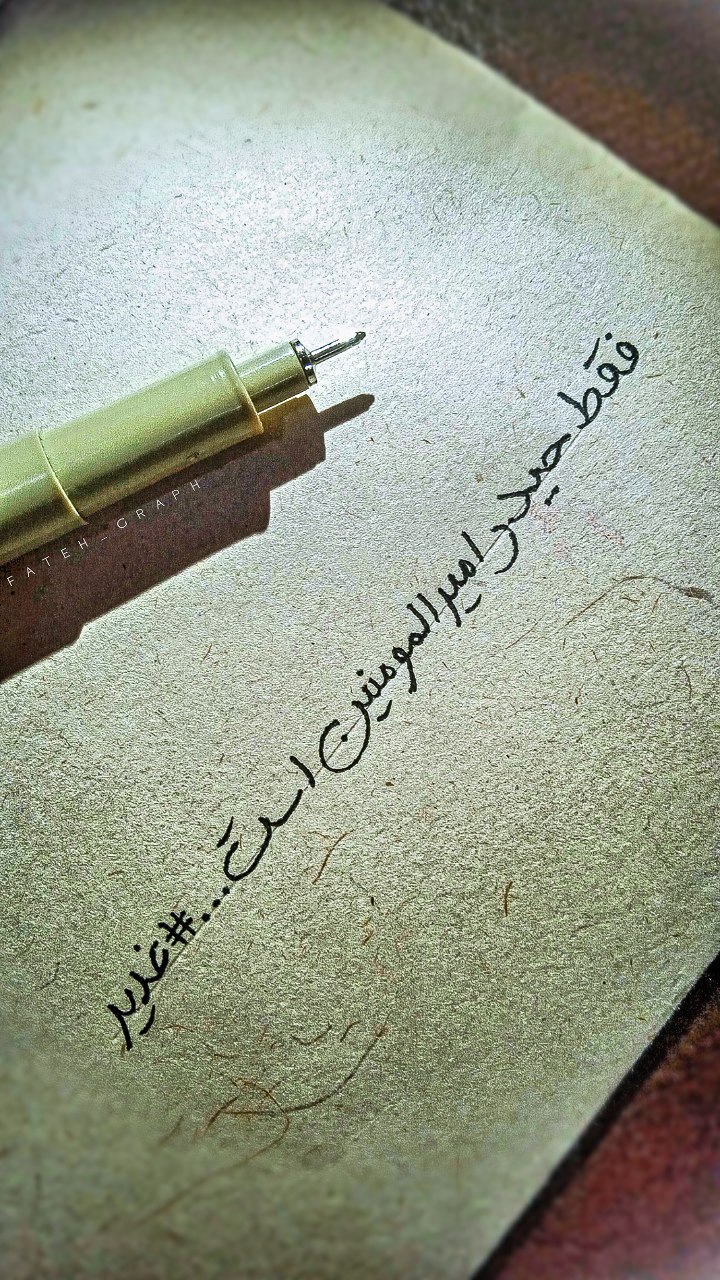 فقط حیدر امیرالمومنین است...#غدیر
FATEH_GRAPH